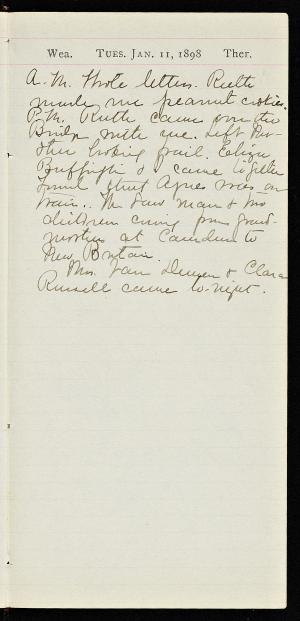 Wea. TUES. JAN. 11, 1898 Ther.
A. M. Wrote letters. Ruth
made me peanut cookies.
P. M. Ruth came on the
with me. Left
looking frail.
Buffington & I came together
Found that Agnes was on
train. We saw man & two
children coming from grand-
mother at Camden to
New Britain.
Mrs. Van Deusen & Clara
Russell came to-night.